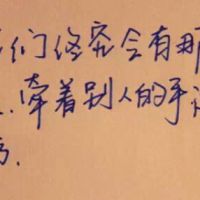 们终究会有那
牵着别人的手